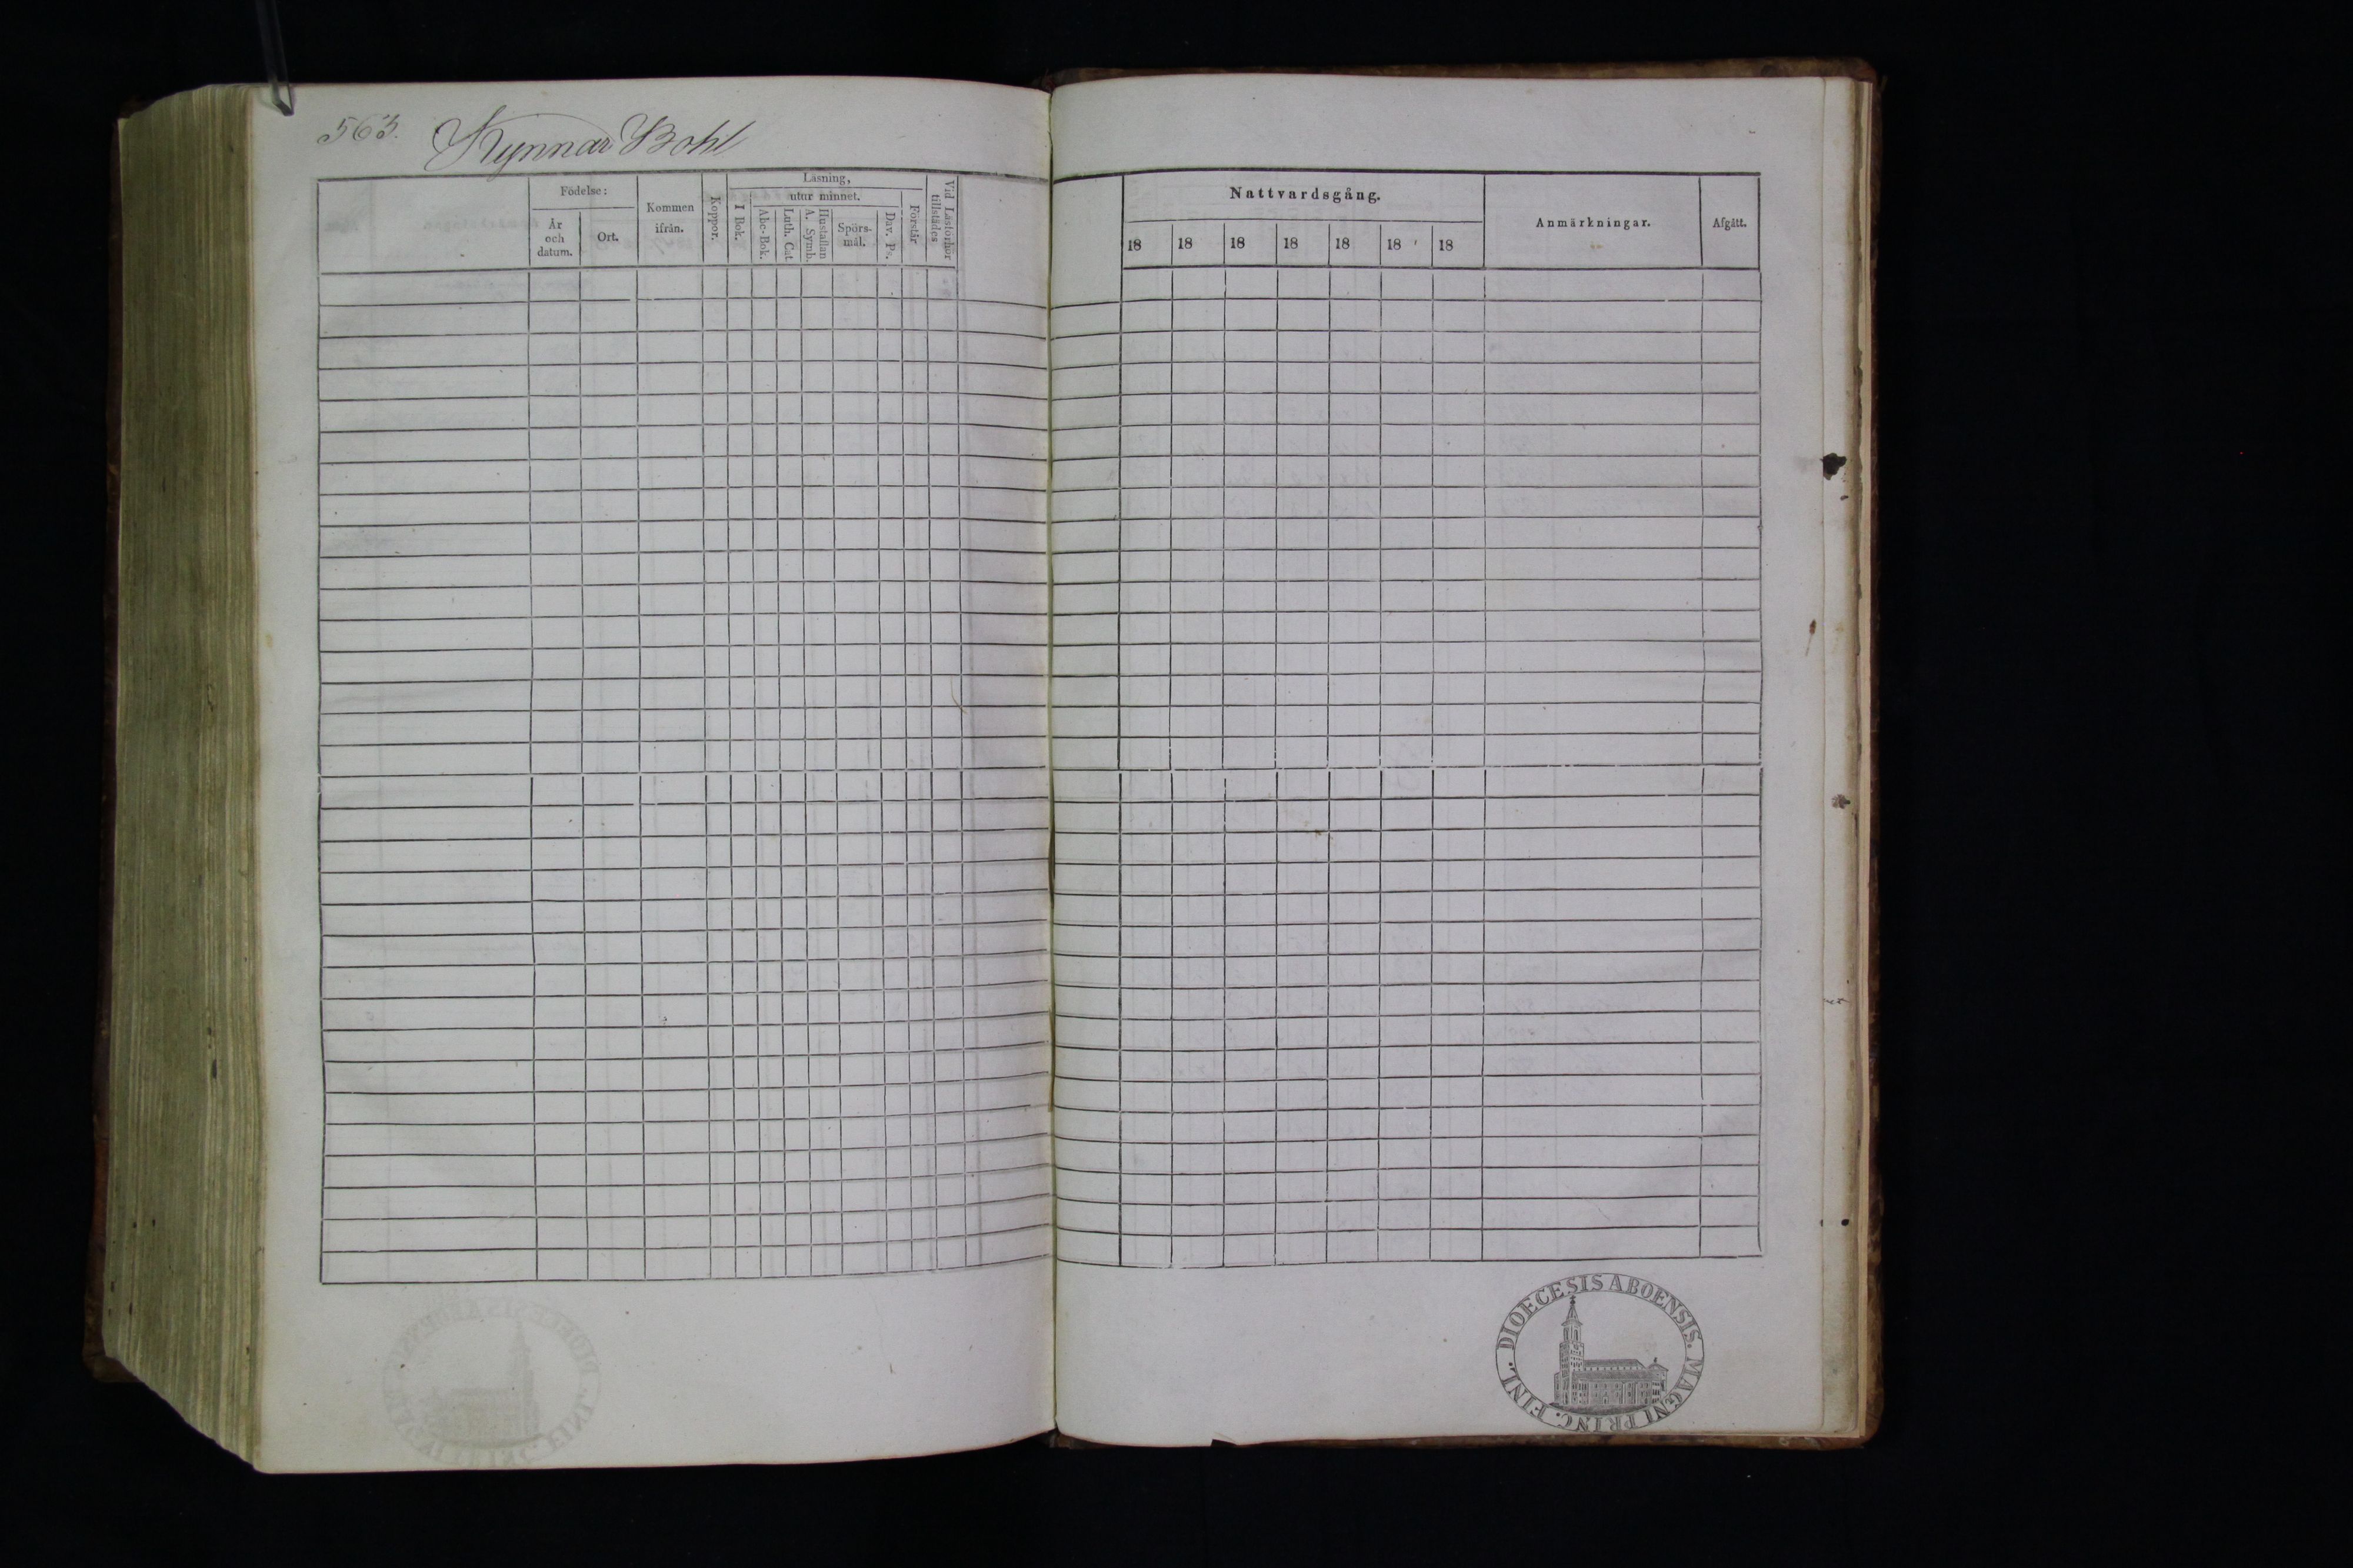 563. Kynnar Bohl
Födelse:
År
och
datum.
Ort.
Kommen
ifrån.
Koppor.
Läsning,
I Bok.
utur minnet.
Abc-Bok.
Luth. Cat.
Hustaflan
A. Symb.
Spörs-
mål.
Dav. Ps.
Förstår
Vid Läsförhör
tillstädes
Nattvardsgång.
18 18 18 18 18 18 18
Anmärkningar.
Afgått.
DIOECESIS ABOENSIS. MAGNI PRINC. FINL.